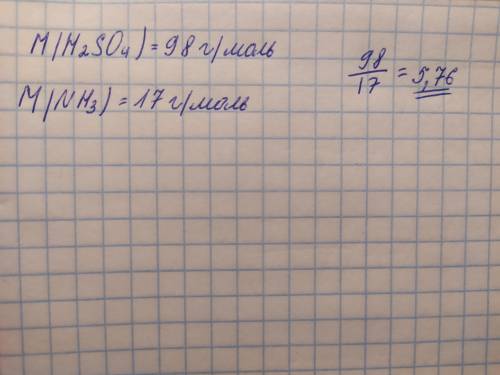 M(H₂SO₄) = 98 г/моль
M(NH₃) = 17 г/моль
98/17 = 5,76